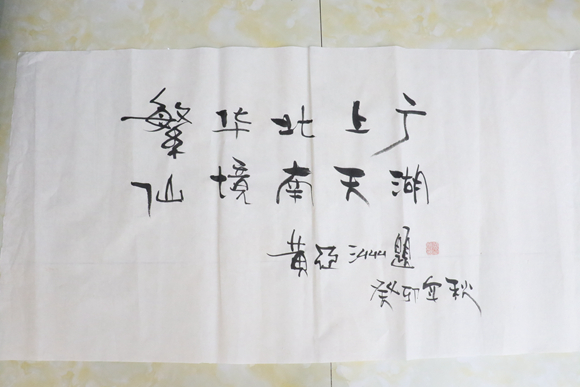 繁华北上广
仙境南天湖
黄亚洲题
癸卯年秋